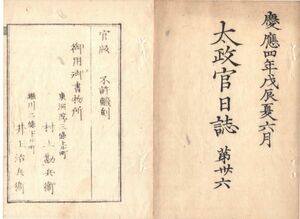 慶應四年戊辰夏六月
太政官日誌 第卅六
官版 不許翻刻
御用御書物所
東洞院三條上ル町
村上勘兵衛
堀川二條下ル町
井上治兵衛